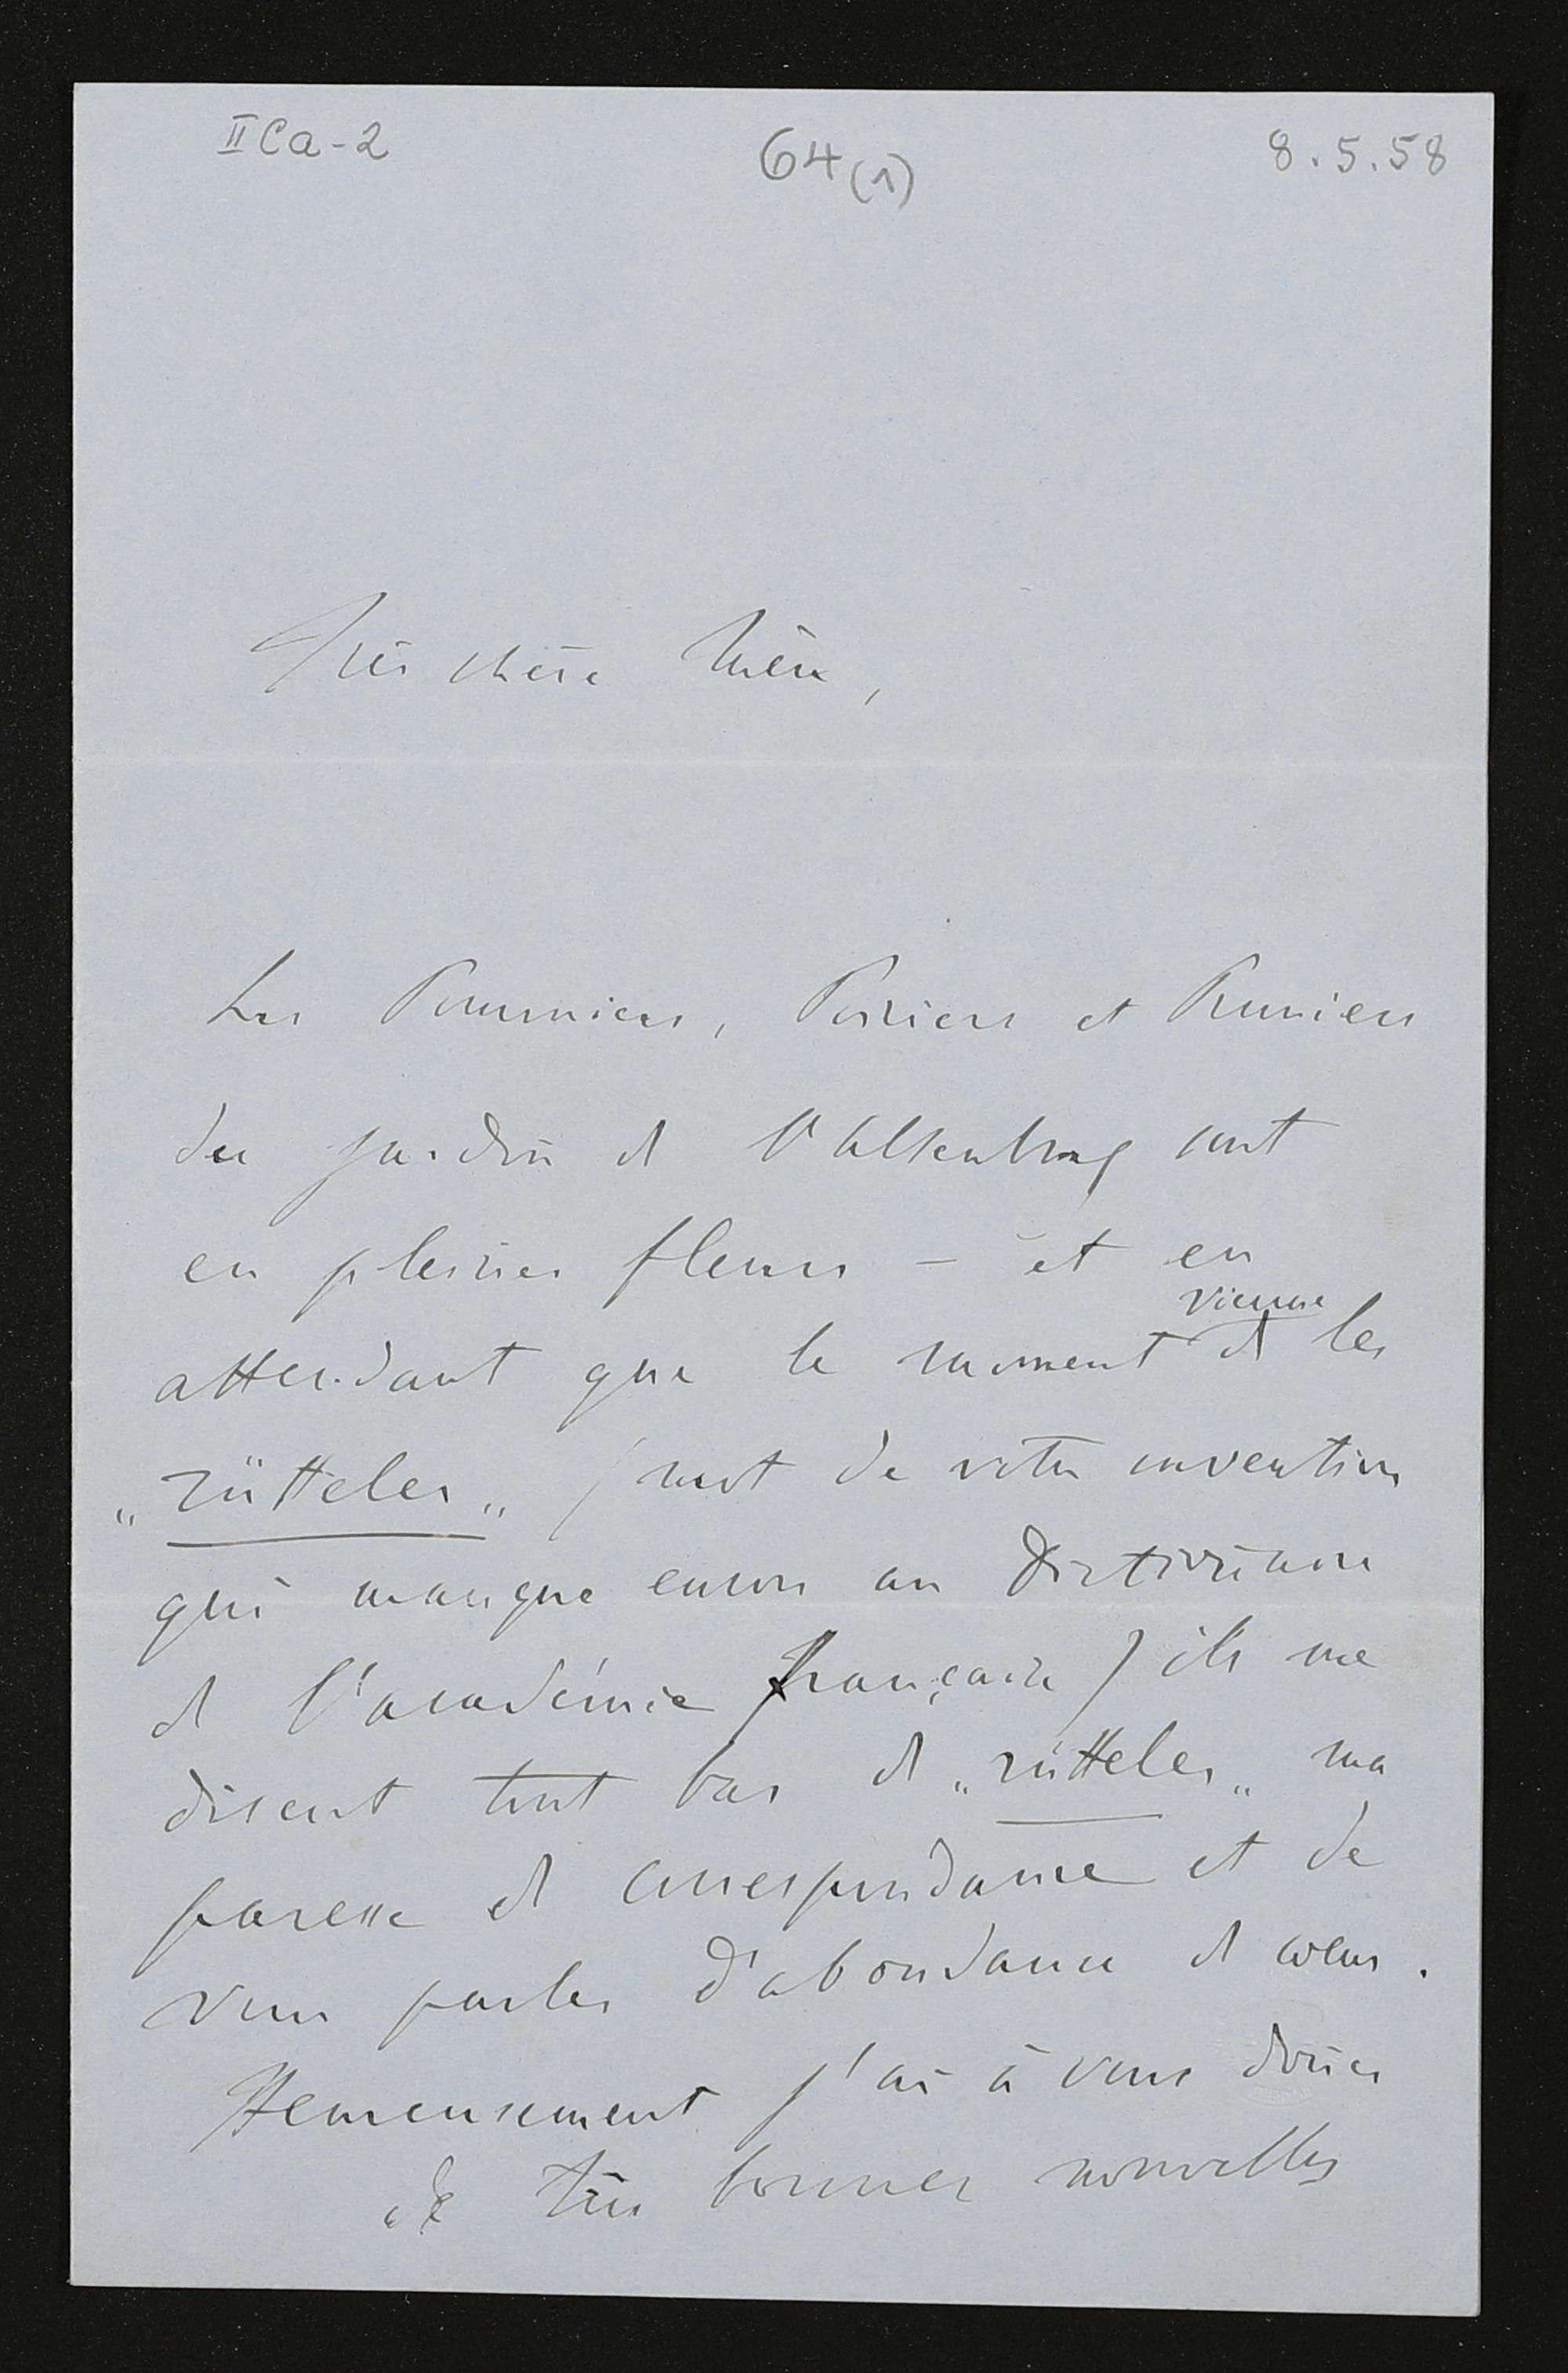 II Ca-2
64 (1)
8.5.58
Très chère Mère,
Les Pommiers, Poiriers et Pruniers
du jardin de l'Altenburg sont
en pleines fleurs – et en
attendant que le moment vienne de les
„rütteler„ (mot de votre invention
qui manque encore au Dictionaire
de l'académie française) ils me
disent tout bas de „rütteler„ ma
paresse de correspondance et de
vous parler d'abondance de cœur.
Heureusement j'ai à vous doner
de très bonnes nouvelles